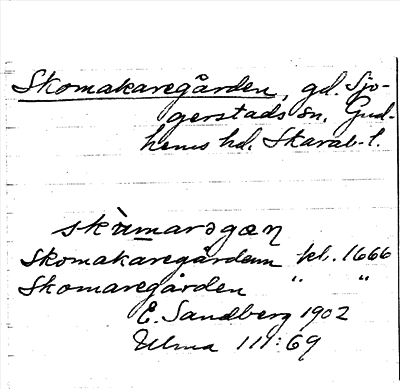 Skomakaregården, gd. Sjo-
gerstads sn. Gud-
hems hd. Skarab. l.
skùmarəgæɳ
Skomakaregårdenn kl. 1666
Skomaregården " "
E. Sandberg 1902
Ulma 111:69